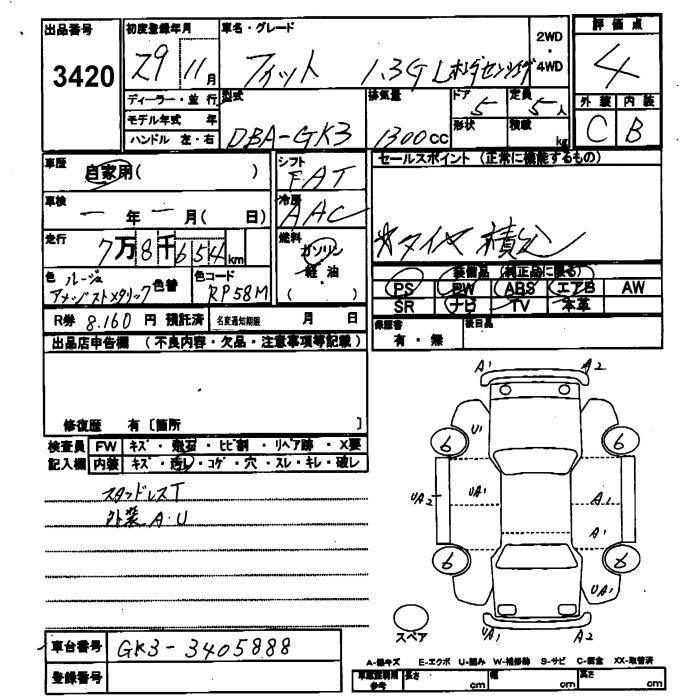 出品番号 初度登録年月 車名・グレード 2WD 評価点
3420 29年 11月 フィット 1.3G Lホンダセンシング 4WD 4
ディーラー・並行 型式 排気量 ドア 定員 外装 内装
モデル年式 年 DBA-GK3 1300cc 5 5人 C B
ハンドル 左・右 形状 積載 kg
車歴 自家用( ) シフト FAT セールスポイント (正常に機能するもの)
車検 一年一月( 日) 冷房 AAC
走行 7万8千654km 燃料 ガソリン 軽・油 ( ) *タイヤ積込
色 ルージュアメジストメタリック 色替 色コード RP58M
装備品 (純正品に限る)
PS PW ABS エアB AW
SR ナビ TV 本革
R券 8.160 円 預託済 名変通知期限 月 日 保証書 有・無 後日品
出品店申告欄 (不良内容・欠品・注意事項等記載)
修復歴 有〔箇所 〕
検査員 FW キズ・飛石・ヒビ割・リペア跡・X要
記入欄 内装 キズ・汚レ・コゲ・穴・スレ・キレ・破レ
スタッドレスT
外装A・U
A1 A2
U1
6 6
UA2 UA1 A1
A1
6 6
UA1
スペア UA1 A2
車台番号 GK3-3405888
登録番号
A-線キズ E-エクボ U-凹み W-補修跡 S-サビ C-腐食 XX-取替済
車庫証明用参考 長さ cm 幅 cm 高さ cm